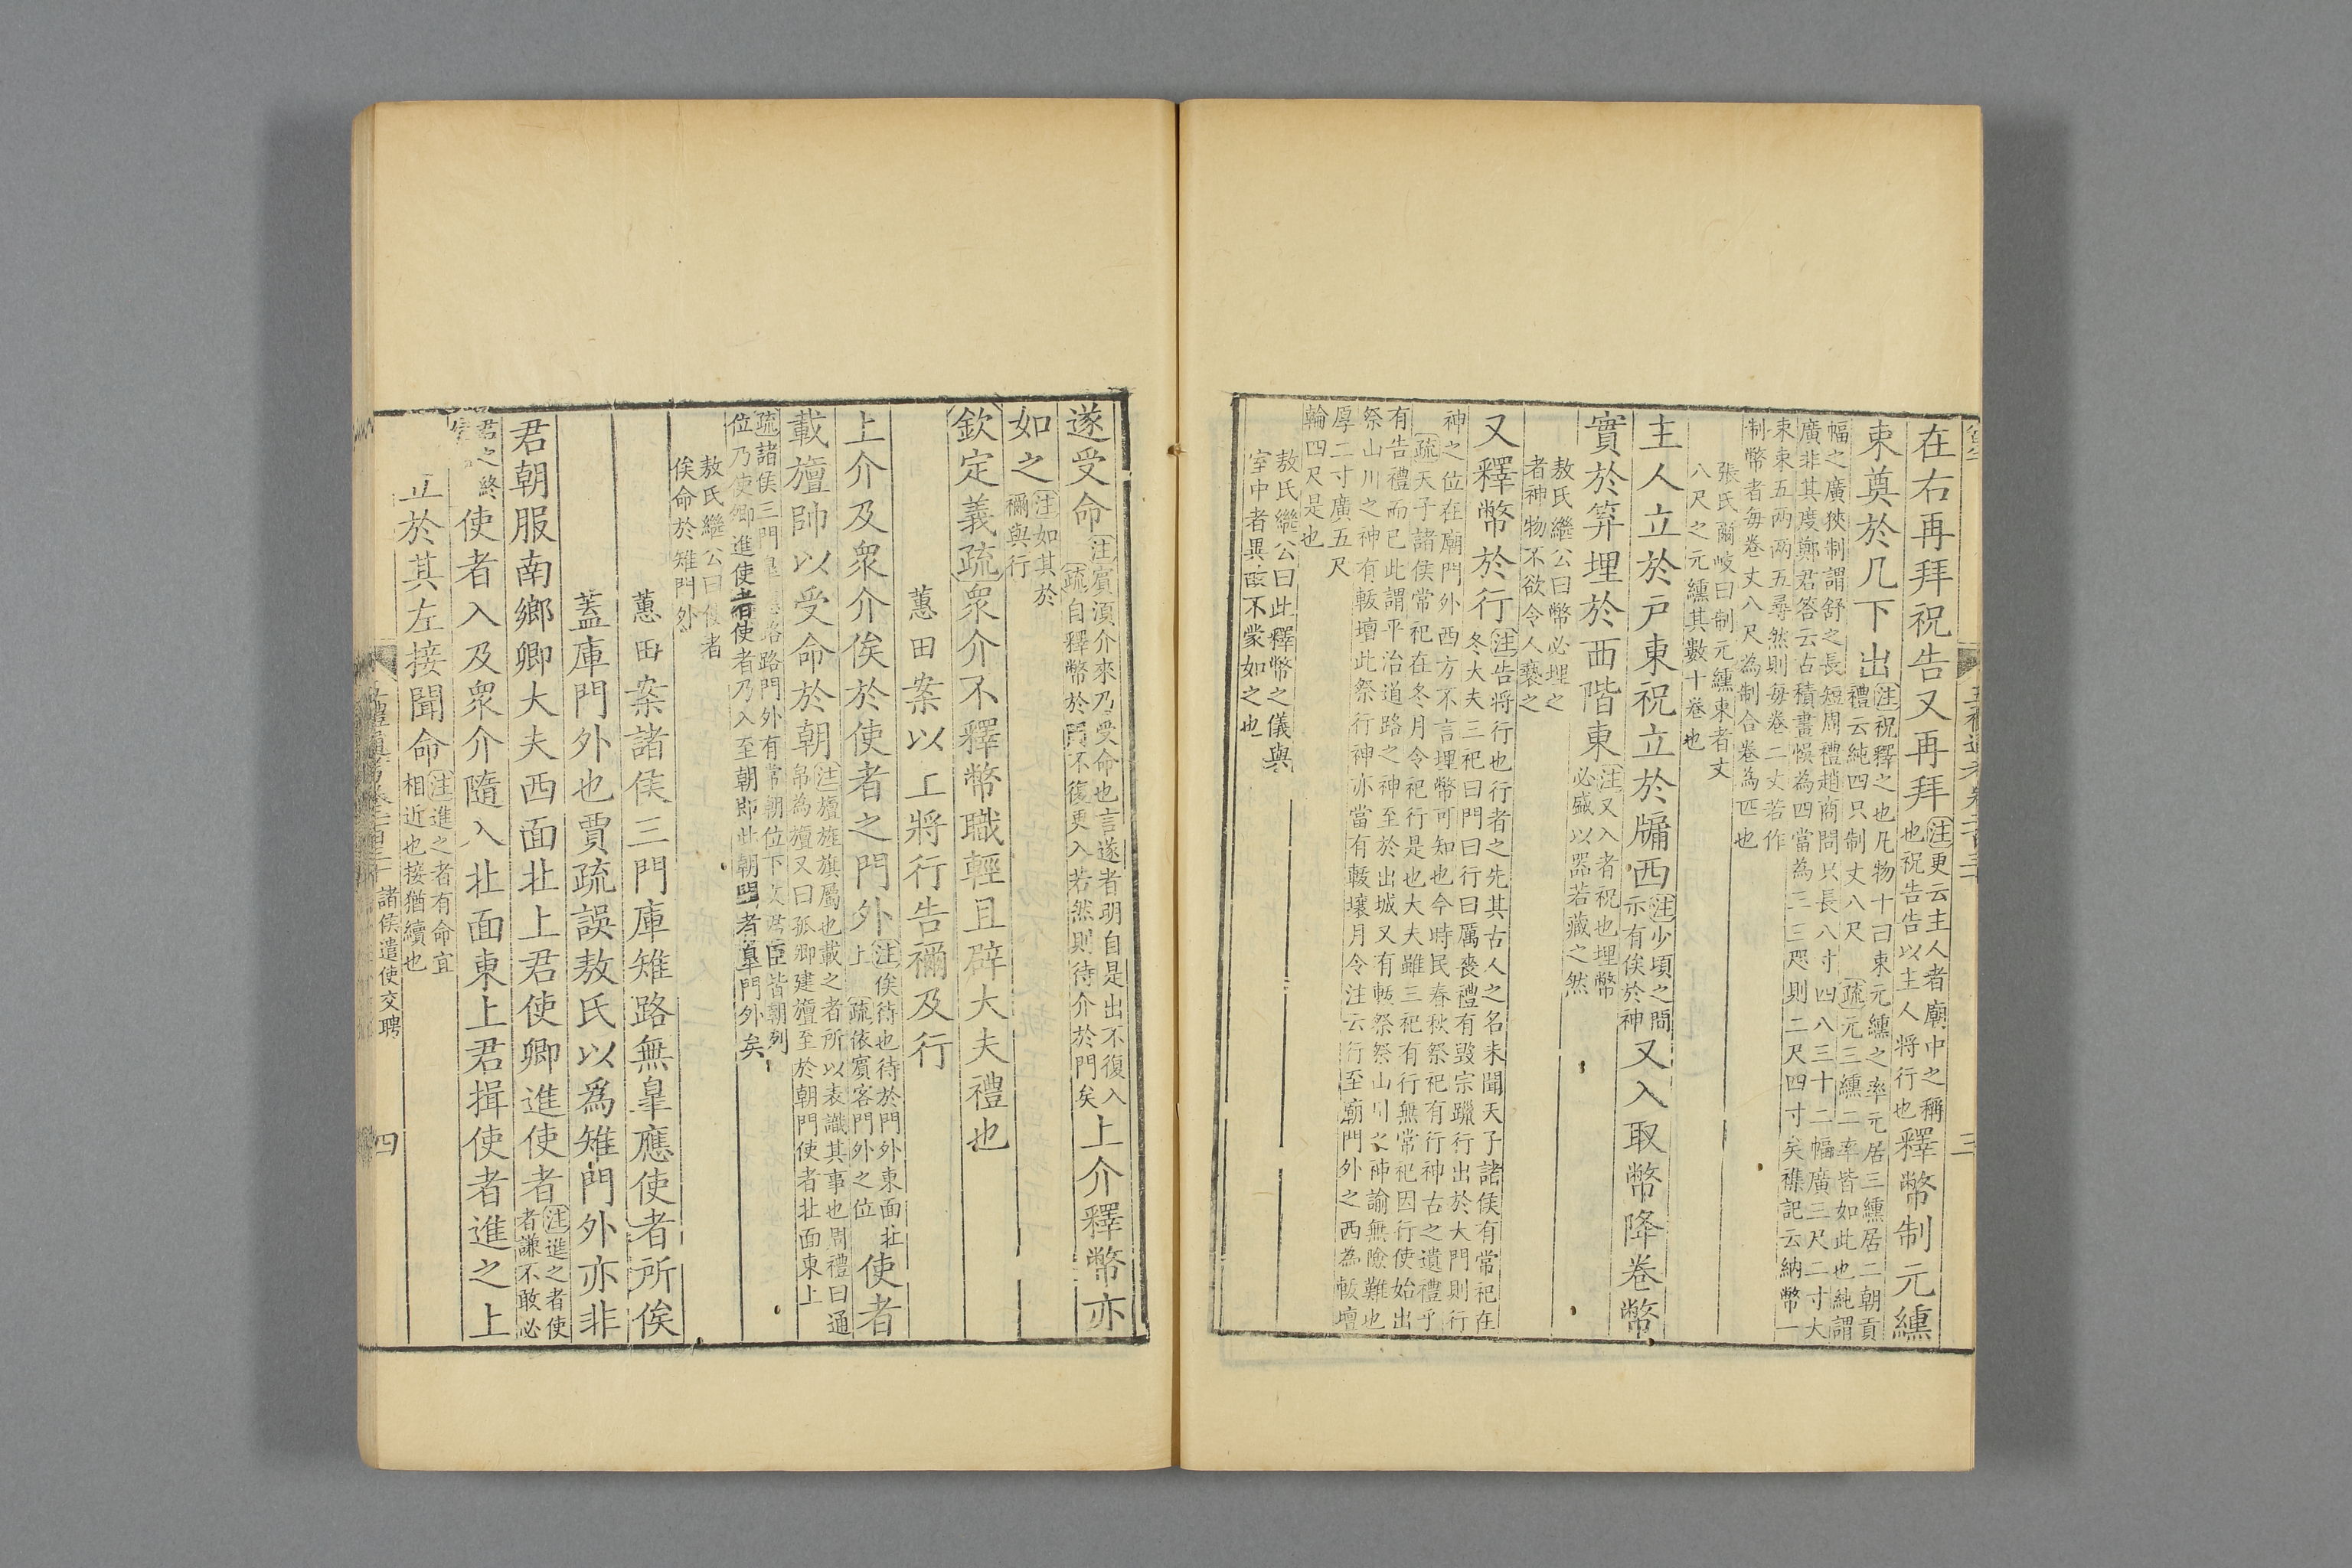 在右再拜祝告又再拜注更云主人者廟中之稱
也祝告告以主人將行也釋幣制元纁
束奠於几下出注祝釋之也凡物十曰束元纁之率元居三纁居二朝貢
禮云純四只制丈八尺 疏元三纁二率皆如此也純謂
幅之廣狹制謂舒之長短周禮趙商問只長八寸四八三十二幅廣三尺二寸大
廣非其度鄭君答云古積畫悞為四當為三三咫則二尺四寸矣襍記云納幣一
束束五兩兩五尋然則每卷二丈若作
制幣者每卷丈八尺為制合卷為匹也
張氏爾岐曰制元纁束者丈
八尺之元纁其數十卷也
主人立於戶東祝立於牖西注少頃之間
示有俟於神又入取幣降卷幣
實於笲埋於西階東注又入者祝也埋幣
必盛以器若藏之然
敖氏繼公曰幣必埋之
者神物不欲令人褻之
又釋幣於行注告將行也行者之先其古人之名未聞天子諸侯有常祀在
冬大夫三祀曰門曰行曰厲喪禮有毀宗躐行出於大門則行
神之位在廟門外西方不言埋幣可知也今時民春秋祭祀有行神古之遺禮乎
疏天子諸侯常祀在冬月令祀行是也大夫雖三祀有行無常祀因行使始出
有告禮而已此謂平治道路之神至於出城又有軷祭祭山川之神諭無險難也
祭山川之神有軷壇此祭行神亦當有軷壤月令注云行至廟門外之西為軷壇
厚二寸廣五尺
輪四尺是也
敖氏繼公曰此釋幣之儀與
室中者異故不蒙如之也
遂受命注賓須介來乃受命也言遂者明自是出不復入
疏自釋幣於門不復更入若然則待介於門矣上介釋幣亦
如之注如其於
禰與行
欽定義疏眾介不釋幣職輕且辟大夫禮也
蕙田案以上將行告禰及行
上介及眾介俟於使者之門外注俟待也待於門外東面北
上 疏依賓客門外之位使者
載旜帥以受命於朝注旜旌旗屬也載之者所以表識其事也周禮曰通
帛為旜又曰孤卿建旜至於朝門使者北面東上
疏諸侯三門皐應路路門外有常朝位下文君臣皆朝列
位乃使卿進使者使者乃入至朝即此朝門者皐門外矣
敖氏繼公曰俟者
俟命於雉門外
蕙田案諸侯三門庫雉路無皐應使者所俟
蓋庫門外也賈疏誤敖氏以爲雉門外亦非
君朝服南鄉卿大夫西面北上君使卿進使者注進之者使
者謙不敢必
君之終
使者入及眾介隨入北面東上君揖使者進之上
立於其左接聞命注進之者有命宜
相近也接猶續也
諸侯遣使交聘
四